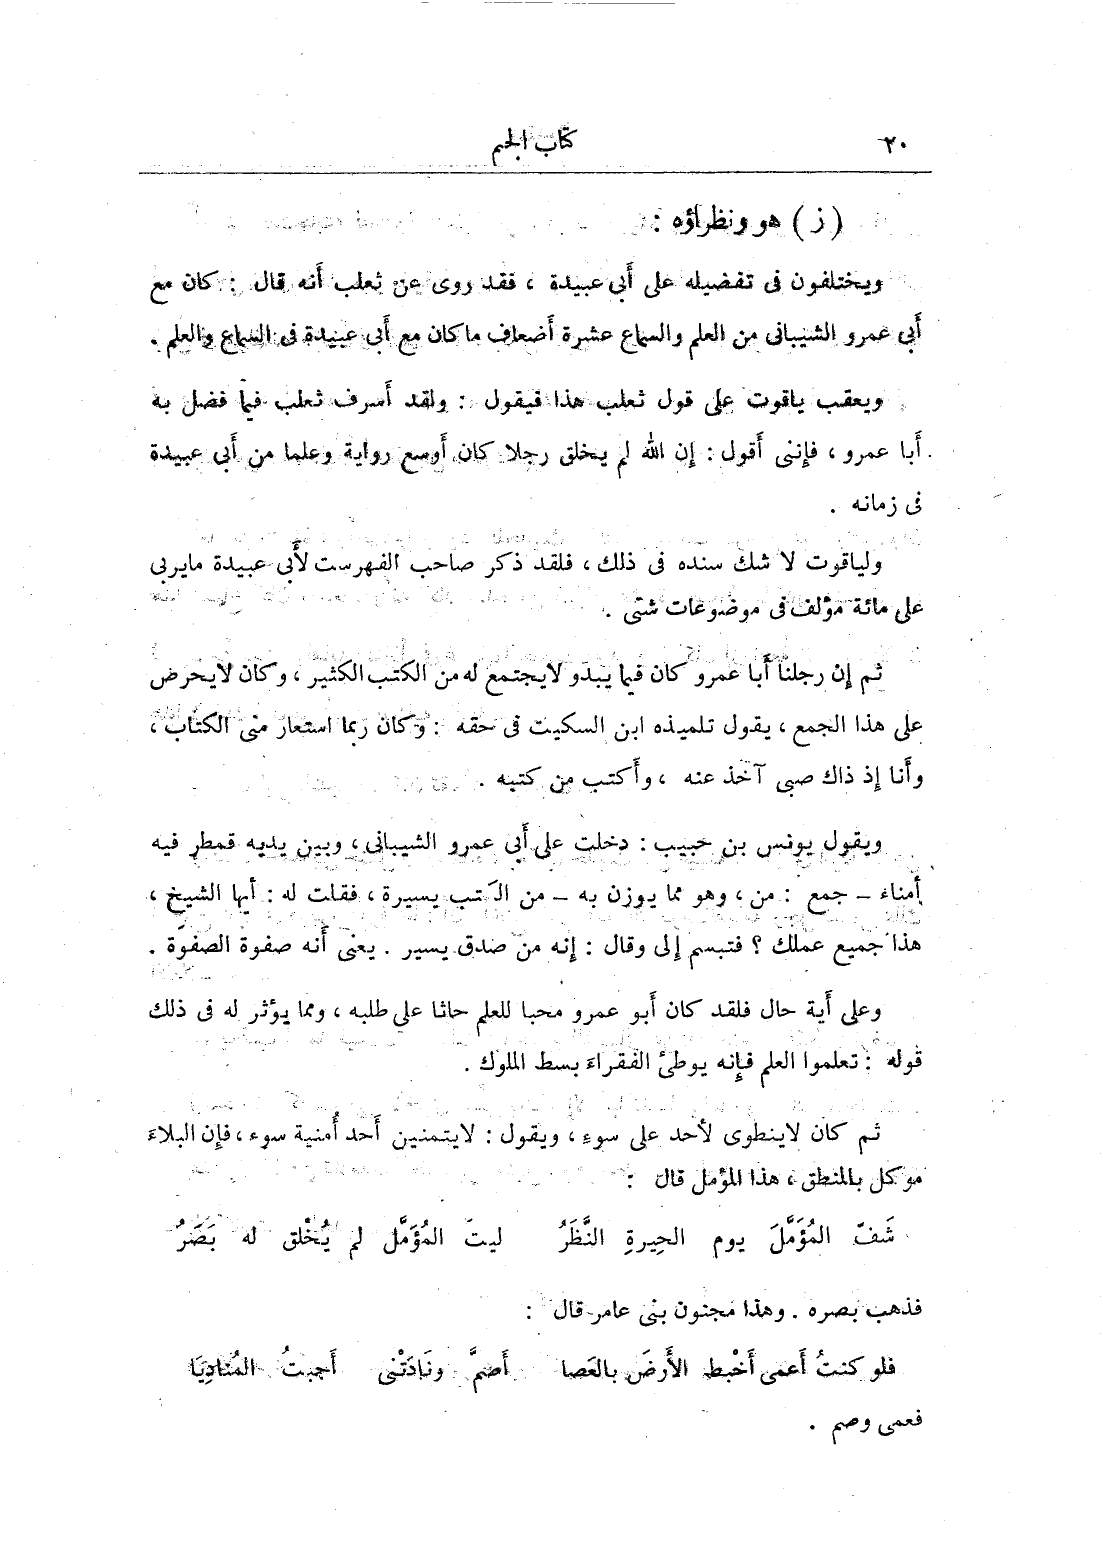 ٢٠
كتاب الجيم
( ز ) هو ونظراؤه :
ويختلفون فى تفضيله على أبى عبيدة ، فقد روى عن ثعلب أنه قال : كان مع
أبى عمرو الشيبانى من العلم والسماع عشرة أضعاف ما كان مع أبى عبيدة فى السماع والعلم .
ويعقب ياقوت على قول ثعلب هذا فيقول : ولقد أسرف ثعلب فيما فضل به
أبا عمرو ، فإننى أقول : إن الله لم يخلق رجلا كان أوسع رواية وعلما من أبى عبيدة
فى زمانه .
ولياقوت لا شك سنده فى ذلك ، فلقد ذكر صاحب الفهرست لأبى عبيدة مايربى
على مائة مؤلف فى موضوعات شتى .
ثم إن رجلنا أبا عمرو كان فيما يبدو لايجتمع له من الكتب الكثير ، وكان لايحرض
على هذا الجمع ، يقول تلميذه ابن السكيت فى حقه : وكان ربما استعار منى الكتاب ،
وأنا إذ ذاك صبى آخذ عنه ، وأكتب من كتبه .
ويقول يونس بن حبيب : دخلت على أبى عمرو الشيبانى ، وبين يديه قمطر فيه
أمناء – جمع : من ، وهو مما يوزن به – من الكتب يسيرة ، فقلت له : أيها الشيخ ،
هذا جميع عملك ؟ فتبسم إلى وقال : إنه من صدق يسير . يعنى أنه صفوة الصفوة .
وعلى أية حال فلقد كان أبو عمرو محبا للعلم حاثا على طلبه ، ومما يؤثر له فى ذلك
قوله : تعلموا العلم فإنه يوطئ الفقراء بسط الملوك .
ثم كان لاينطوى لأحد على سوء ، ويقول : لايتمنين أحد أُمنية سوء ، فإن البلاء
موكل بالمنطق ، هذا المؤمل قال :
شَفّ المُؤَمَّلَ يوم الحِيرةِ النَّظَرُ ليتَ المُؤَمَّل لم يُخْلق له بَصَرُ
فذهب بصره . وهذا مجنون بنى عامر قال :
فلو كنتُ أَعمى أَخْبط الأَرضَ بالعَصا أَصمَّ ونَادَتْنى أَجبتُ المُنادِيَا
فعمى وصم .